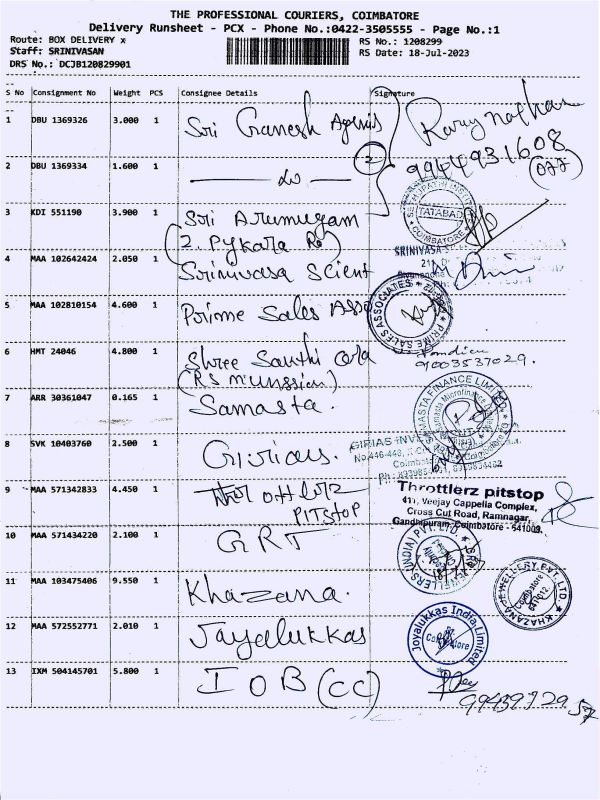 THE PROFESSIONAL COURIERS, COIMBATORE
Delivery Runsheet - PCX - Phone No.:0422-3505555 - Page No.:1
Route: BOX DELIVERY x
RS No.: 1208299
Staff: SRINIVASAN
RS Date: 18-Jul-2023
DRS No.: DCJB120829901
S No Consignment No Weight PCS Consignee Details Signature
1 DBU 1369326 3.000 1 Sri Ganesh
9944931608
2 DBU 1369334 1.600 1
2
3 KDI 551190 3.900 1 Sri Arumugam
(2. Pykara Rd)
TATABAD
COIMBATORE
4 MAA 102642424 2.050 1 Srinivasa Scient
SRINIVASA
5 MAA 102810154 4.600 1 Prime Sales Asso
PRIME SALES ASSOCIATES
6 HMT 24046 4.800 1 Shree Santhi
9003537029.
7 ARR 30361047 0.165 1 Samasta.
SAMASTA FINANCE LIMITED
8 SVK 10403760 2.500 1
GIRIAS
9 MAA 571342833 4.450 1
PITSTOP
Throttlerz pitstop
411, Veejay Cappella Complex,
Cross Cut Road, Ramnagar,
Gandhipuram, Coimbatore - 641009.
10 MAA 571434220 2.100 1 GRT
11 MAA 103475406 9.550 1 Khazana.
KHAZANA JEWELLERY PVT. LTD.
Coimbatore
641012
12 MAA 572552771 2.010 1 Joyalukkas
Joyalukkas India Limited
Coimbatore
13 IXM 504145701 5.800 1 IOB (CC)